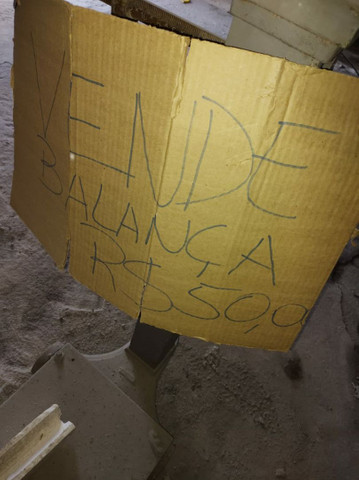 VENDE
BALANÇA
R$ 50,0